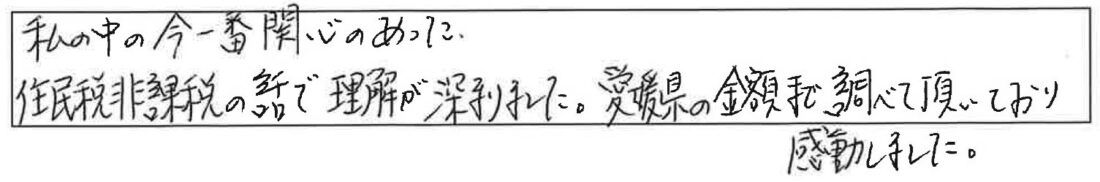 私の中の今一番関心のあった、
住民税非課税の話で理解が深まりました。愛媛県の金額まで調べて頂いており
感動しました。